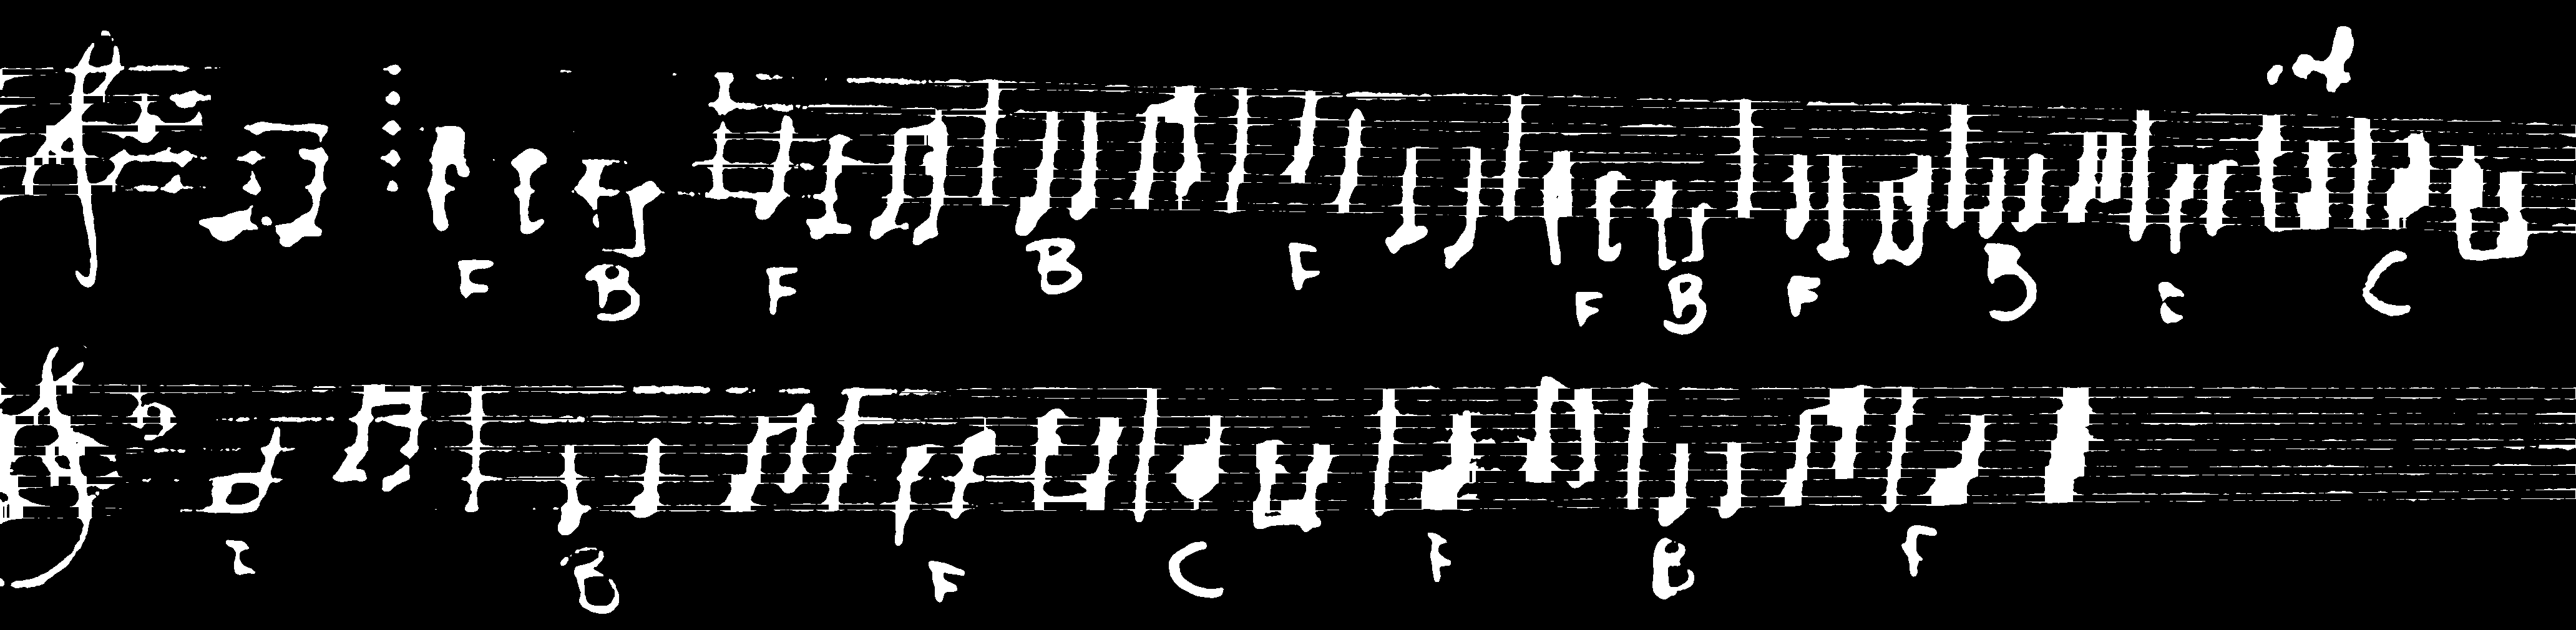 F B F B F F B F B C
B F C F B F